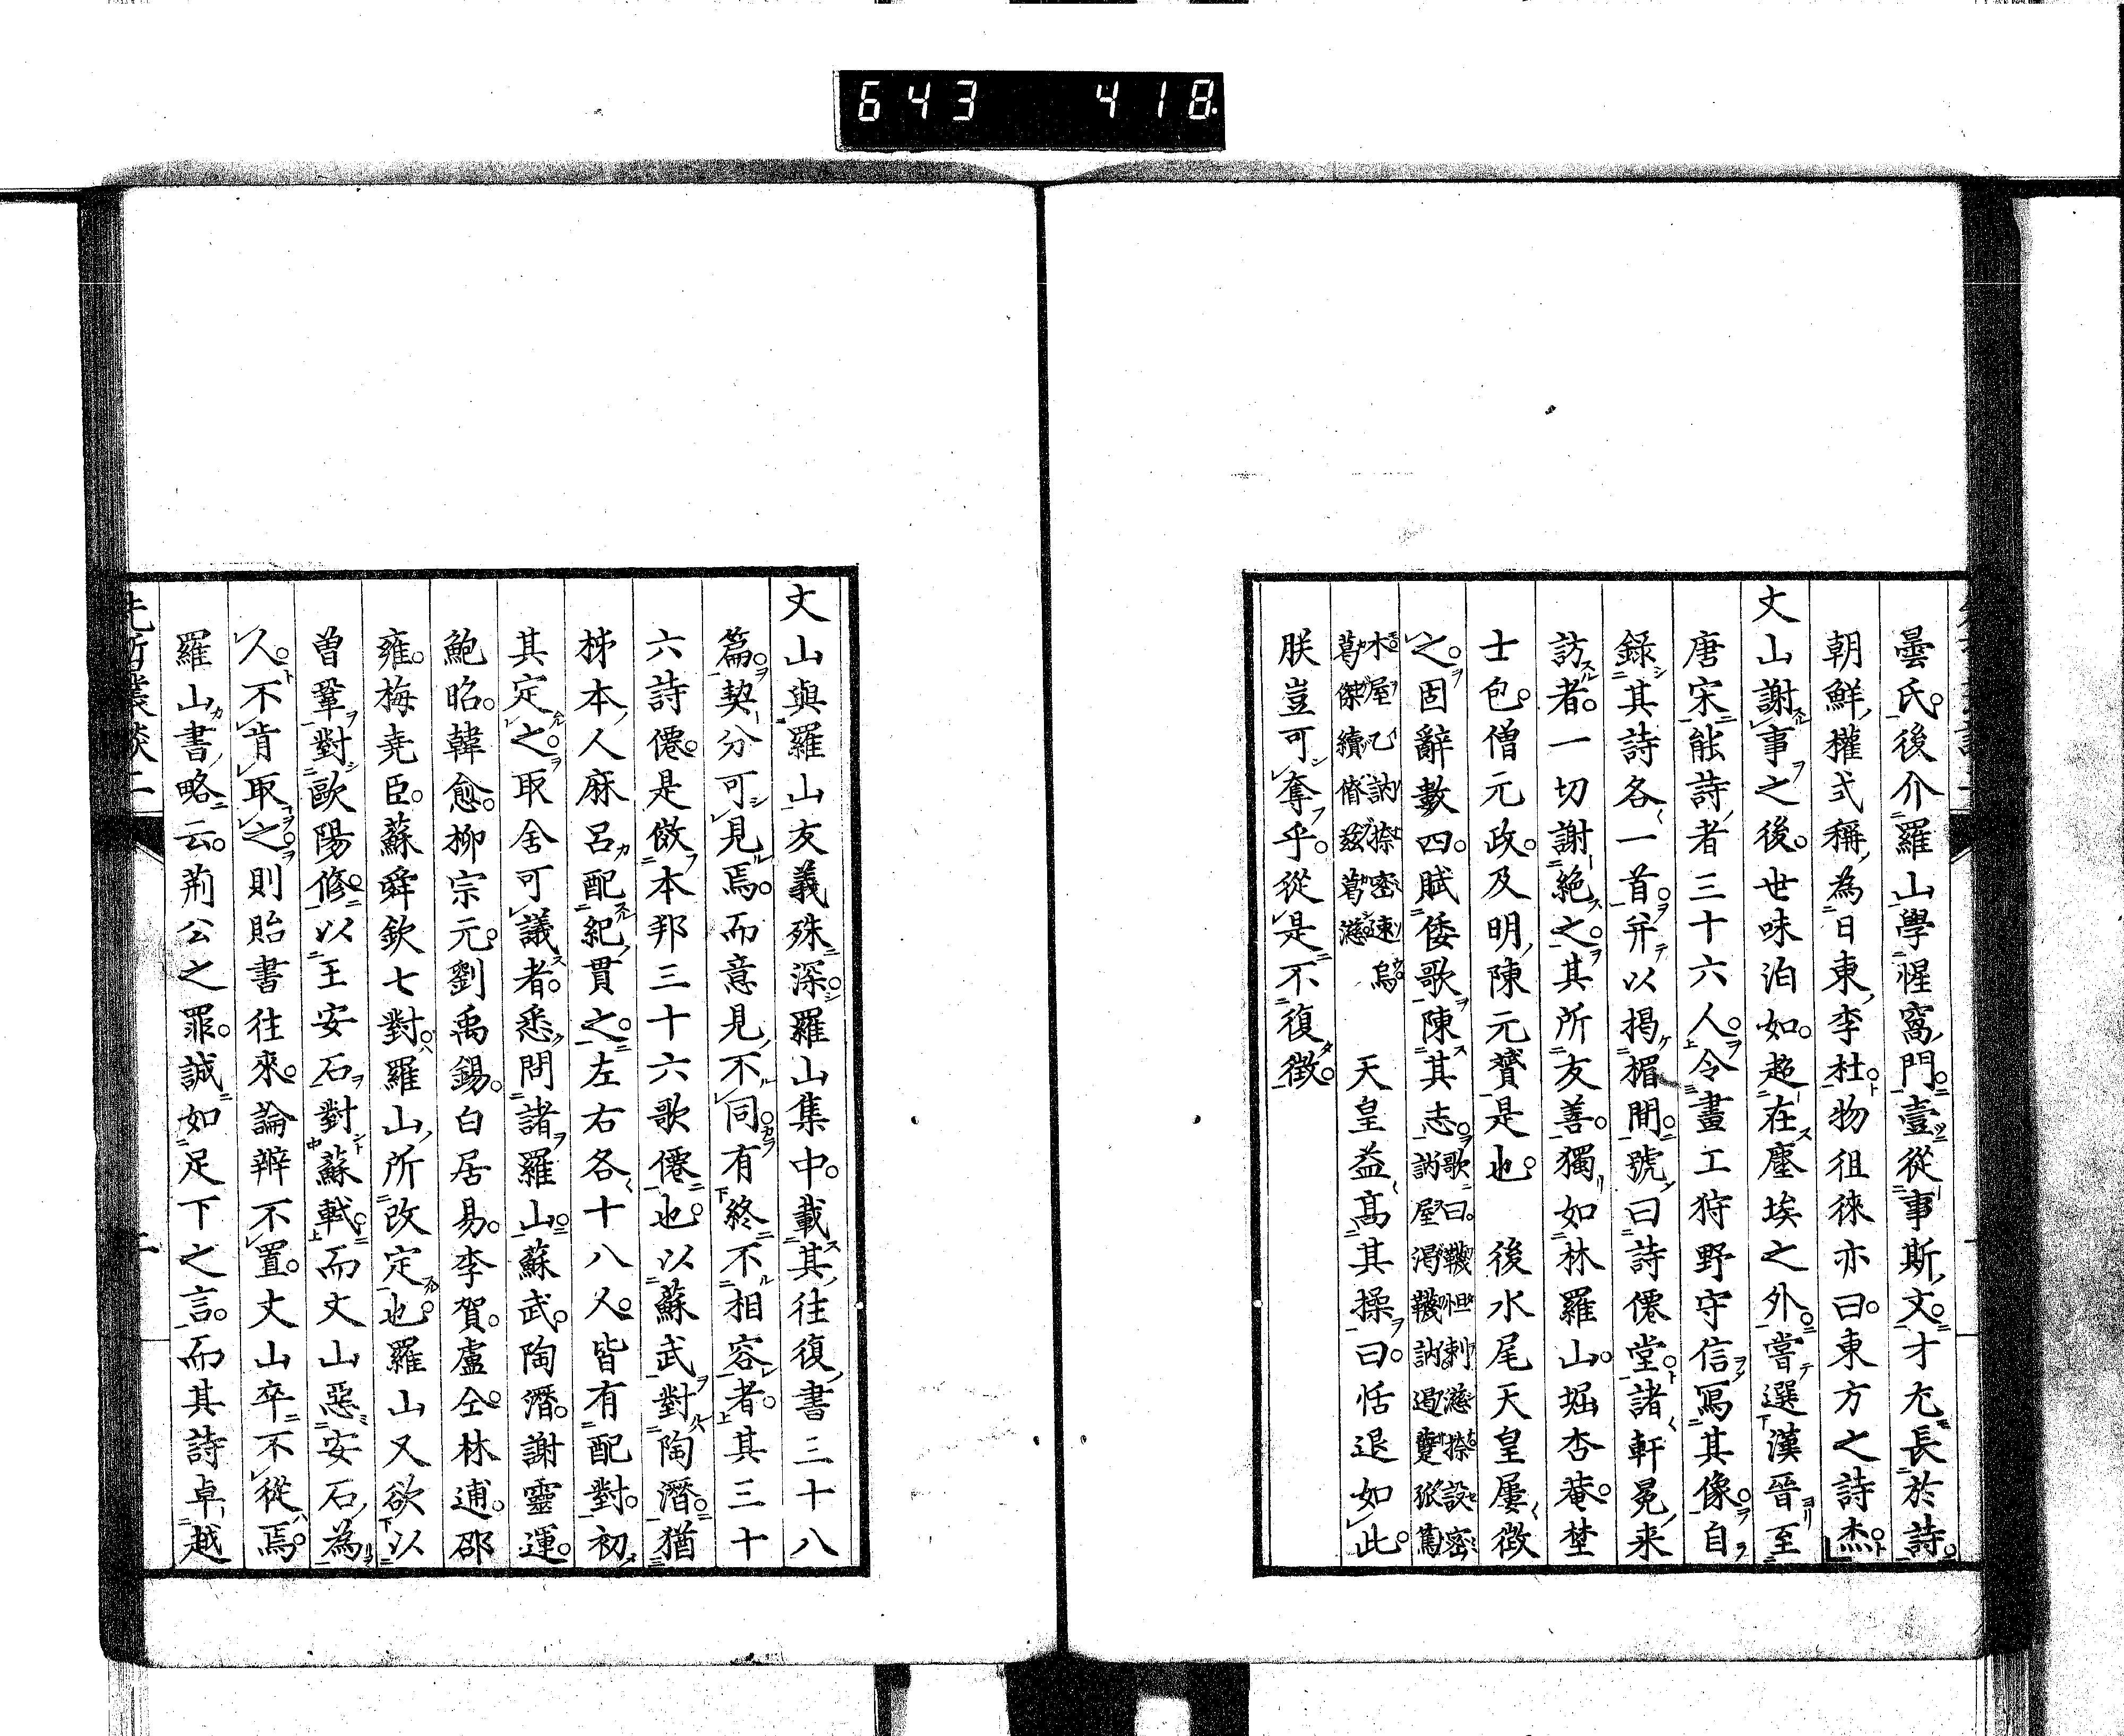 643 418
曇氏。後介羅山學惺窩門。壹從事斯文。才尤長於詩。
朝鮮權式稱為日東李杜。物徂徠亦曰。東方之詩杰。
丈山謝事之後。世味泊如。超在塵埃之外。嘗選漢晉至
唐宋能詩者三十六人。令畫工狩野守信寫其像。自
錄其詩各一首。并以揭楣間。號曰詩僊堂。諸軒冕来
訪者。一切謝絕之。其所友善。獨如林羅山。堀杏菴。埜
士包。僧元政。及明陳元贇是也。 後水尾天皇屢徵
之。固辭數四。賦倭歌陳其志。歌曰。
木屋乙訥捺密速烏 天皇益高其操曰。恬退如此。
朕豈可奪乎。從是不復徵。
丈山與羅山友義殊深。羅山集中。載其往復書三十八
篇。契分可見焉。而意見不同。有終不相容者。其三十
六詩僊。是倣本邦三十六歌僊也。以蘇武對陶潛。猶
柹本人麻呂配紀貫之。左右各十八人。皆有配對。初
其定之。取舍可議者。悉問諸羅山。蘇武。陶潛。謝靈運。
鮑昭。韓愈。柳宗元。劉禹錫。白居易。李賀。盧仝。林逋。邵
雍。梅堯臣。蘇舜欽七對。羅山所改定也。羅山又欲以
曽鞏對歐陽修。以王安石對蘇軾。而丈山惡安石為
人。不肯取之。則貽書往來。論辨不置。丈山卒不從焉。
羅山書略云。荊公之罪。誠如足下之言。而其詩卓越
先哲叢談二 二